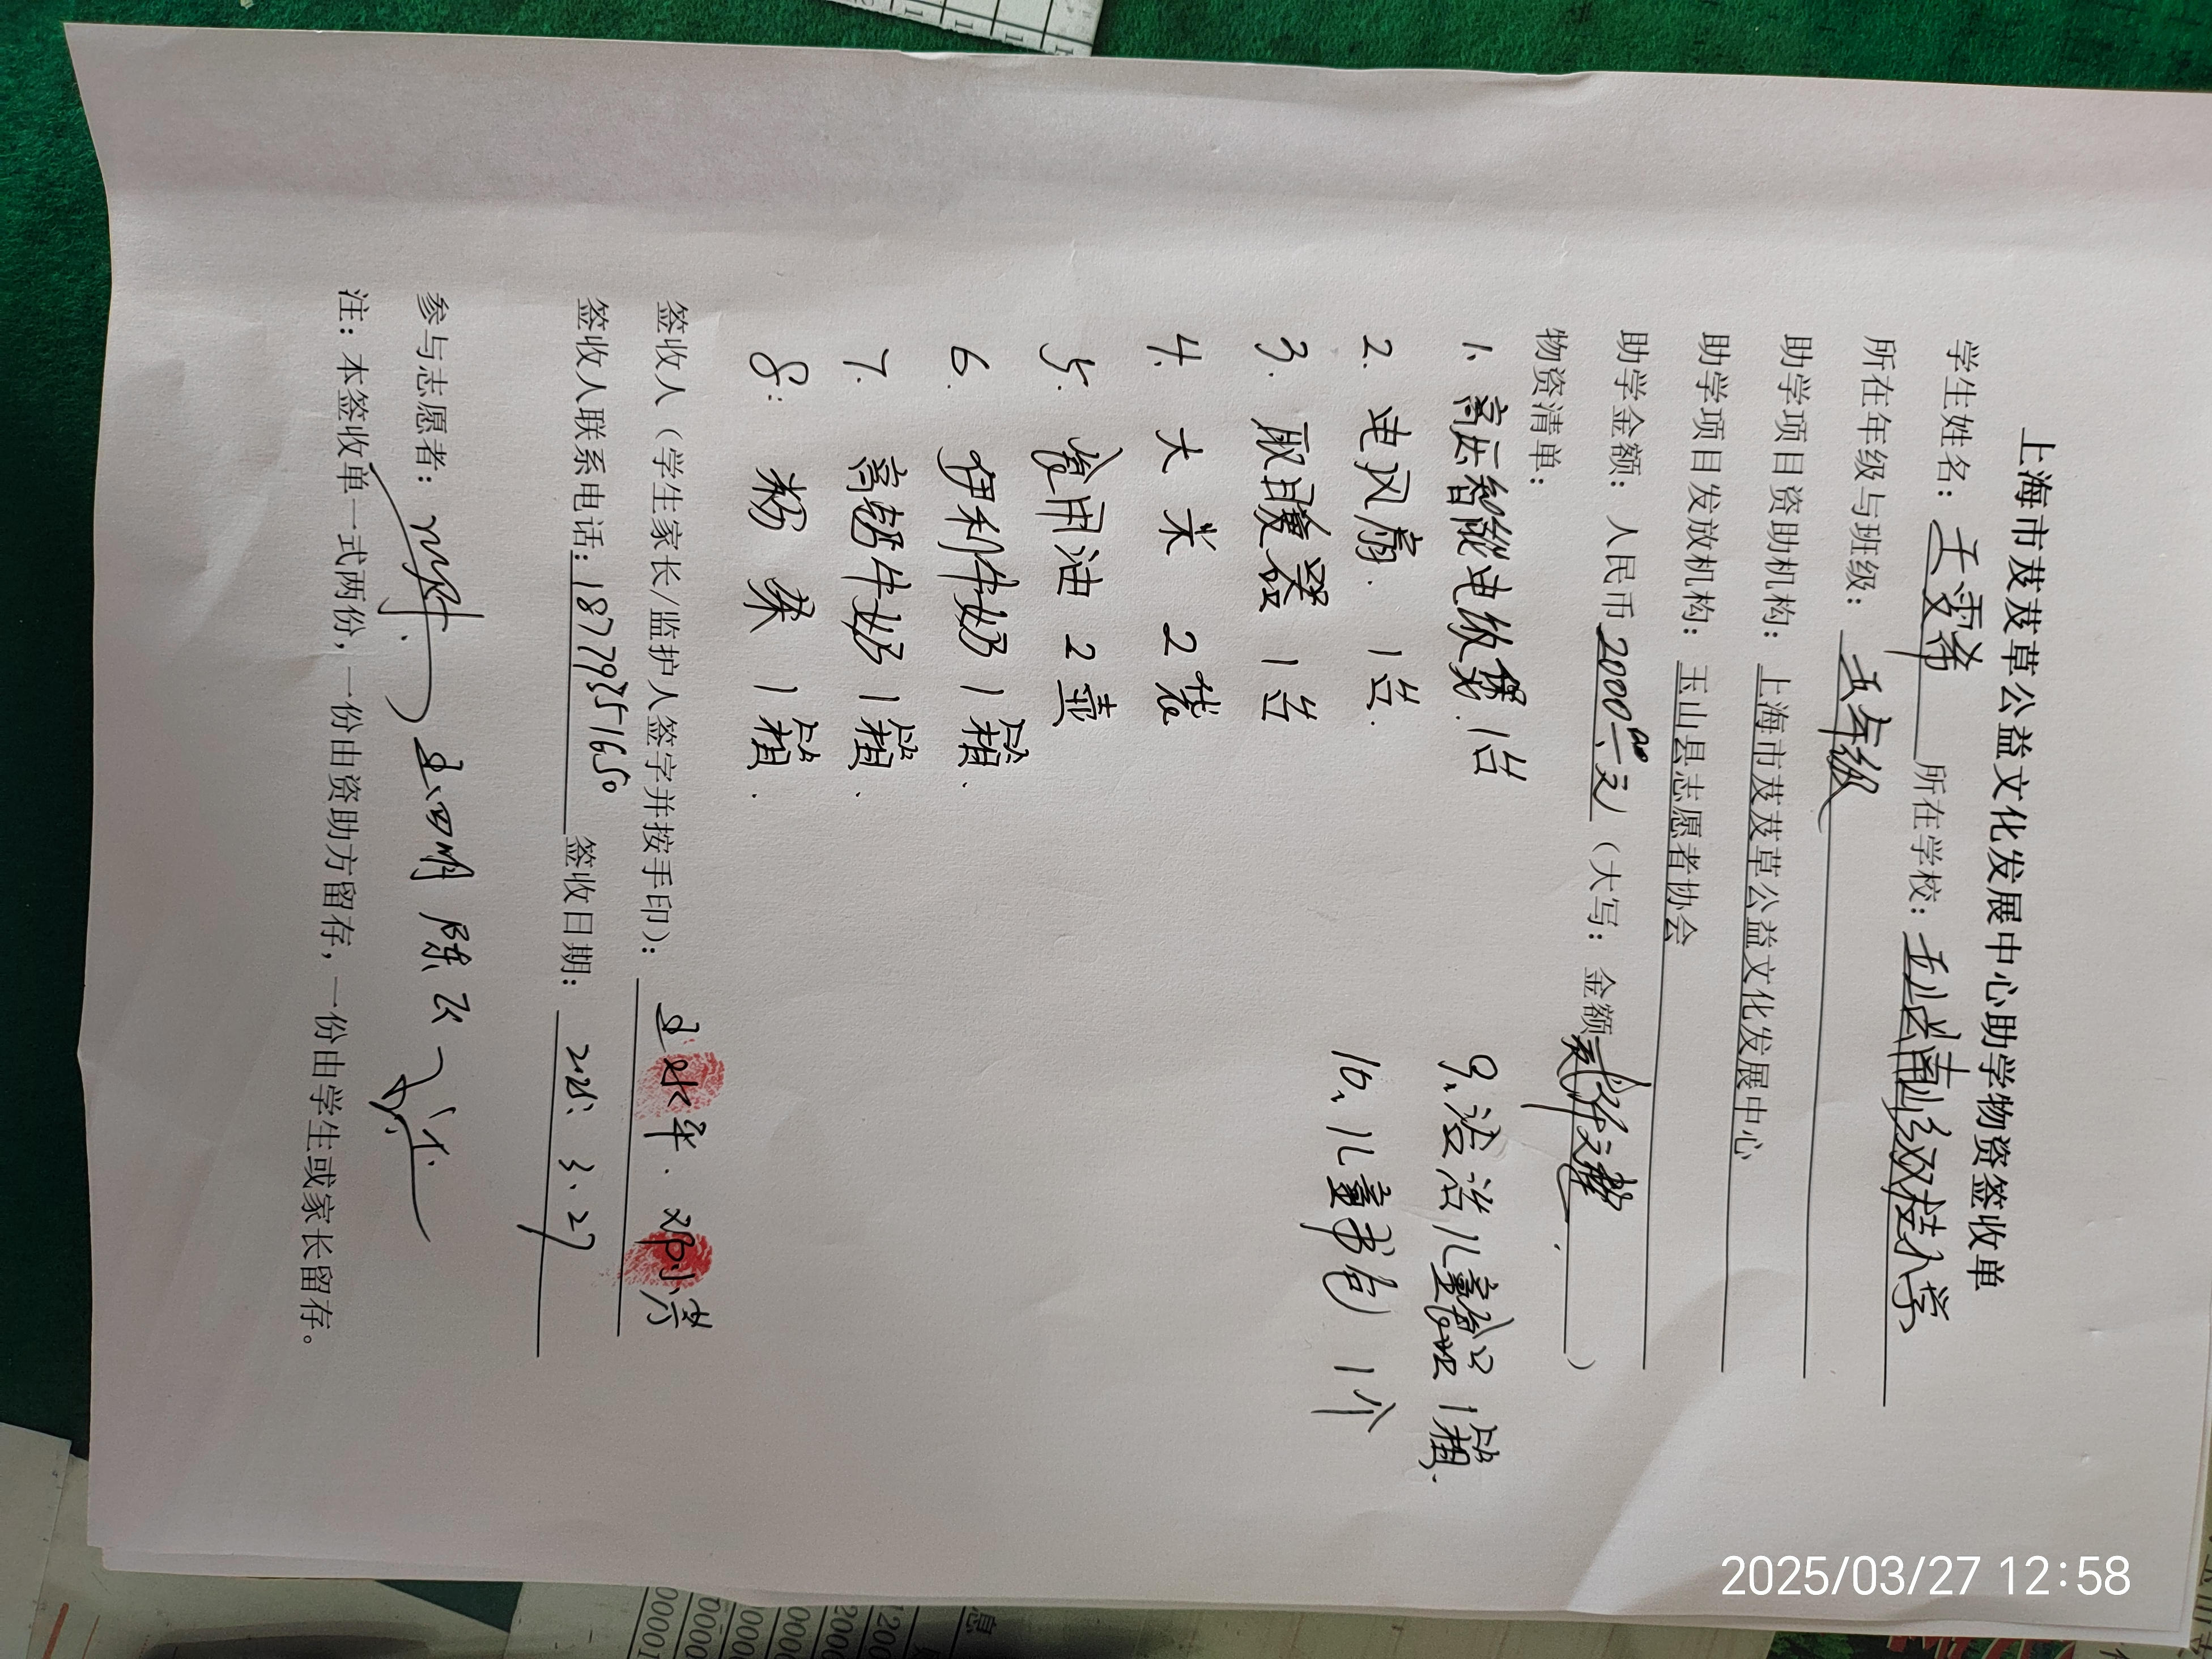 上海市芨芨草公益文化发展中心助学物资签收单
学生姓名：王雯希 所在学校：玉山县南山乡级桂小学
所在年级与班级：五年级
助学项目资助机构：上海市芨芨草公益文化发展中心
助学项目发放机构：玉山县志愿者协会
助学金额：人民币2000元（大写：金额贰仟元整）
物资清单：
1. 高压智能电饭煲 1台
2. 电风扇. 1台.
3. 取暖器 1台
4. 大米 2袋
5. 食用油 2壶
6. 伊利牛奶 1箱.
7. 高钙牛奶 1箱.
8. 粉条 1箱.
9、洁洁儿童 1箱.
10、儿童书包 1个
签收人（学生家长/监护人签字并按手印）： 邓小芳
签收人联系电话：18779351650 签收日期：2025. 3. 27
参与志愿者： 王四明 陈云
注：本签收单一式两份，一份由资助方留存，一份由学生或家长留存。
2025/03/27 12:58